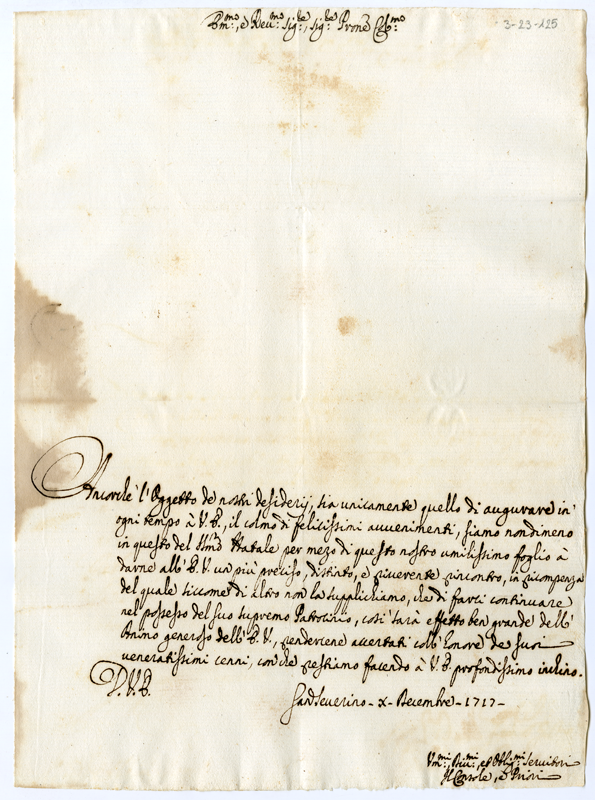 Em:mo, e Reu:mo Sig:re, Sig:re Prone Col:mo
3-23-125
Ancorche l'Oggetto de nostri desiderij, sia unicamente quello di augurare in
ogni tempo à V. E., il colmo di felicissimi auuenimenti, siamo nondimeno
in questo del SSmo Natale per mezo di questo nostro umilissimo foglio à
darne all'E. V. un più preciso, distinto, e riuerente rincontro, in ricompenza
del quale siccome di altro non la supplichiamo, che di farci continuare
nel possesso del suo supremo Patrocinio, così sarà effetto ben grande dell'
Animo generoso dell'E. V., rendercene accertati coll'honore de suoi
veneratissimi cenni, con che restiamo facendo à V. E. profondissimo inchino.
D. V. E.
San Seuerino - X - Decembre - 1717 -
Vm:mi Diu:mi, et Oblig:mi Seruitori
Il Console, e Priori